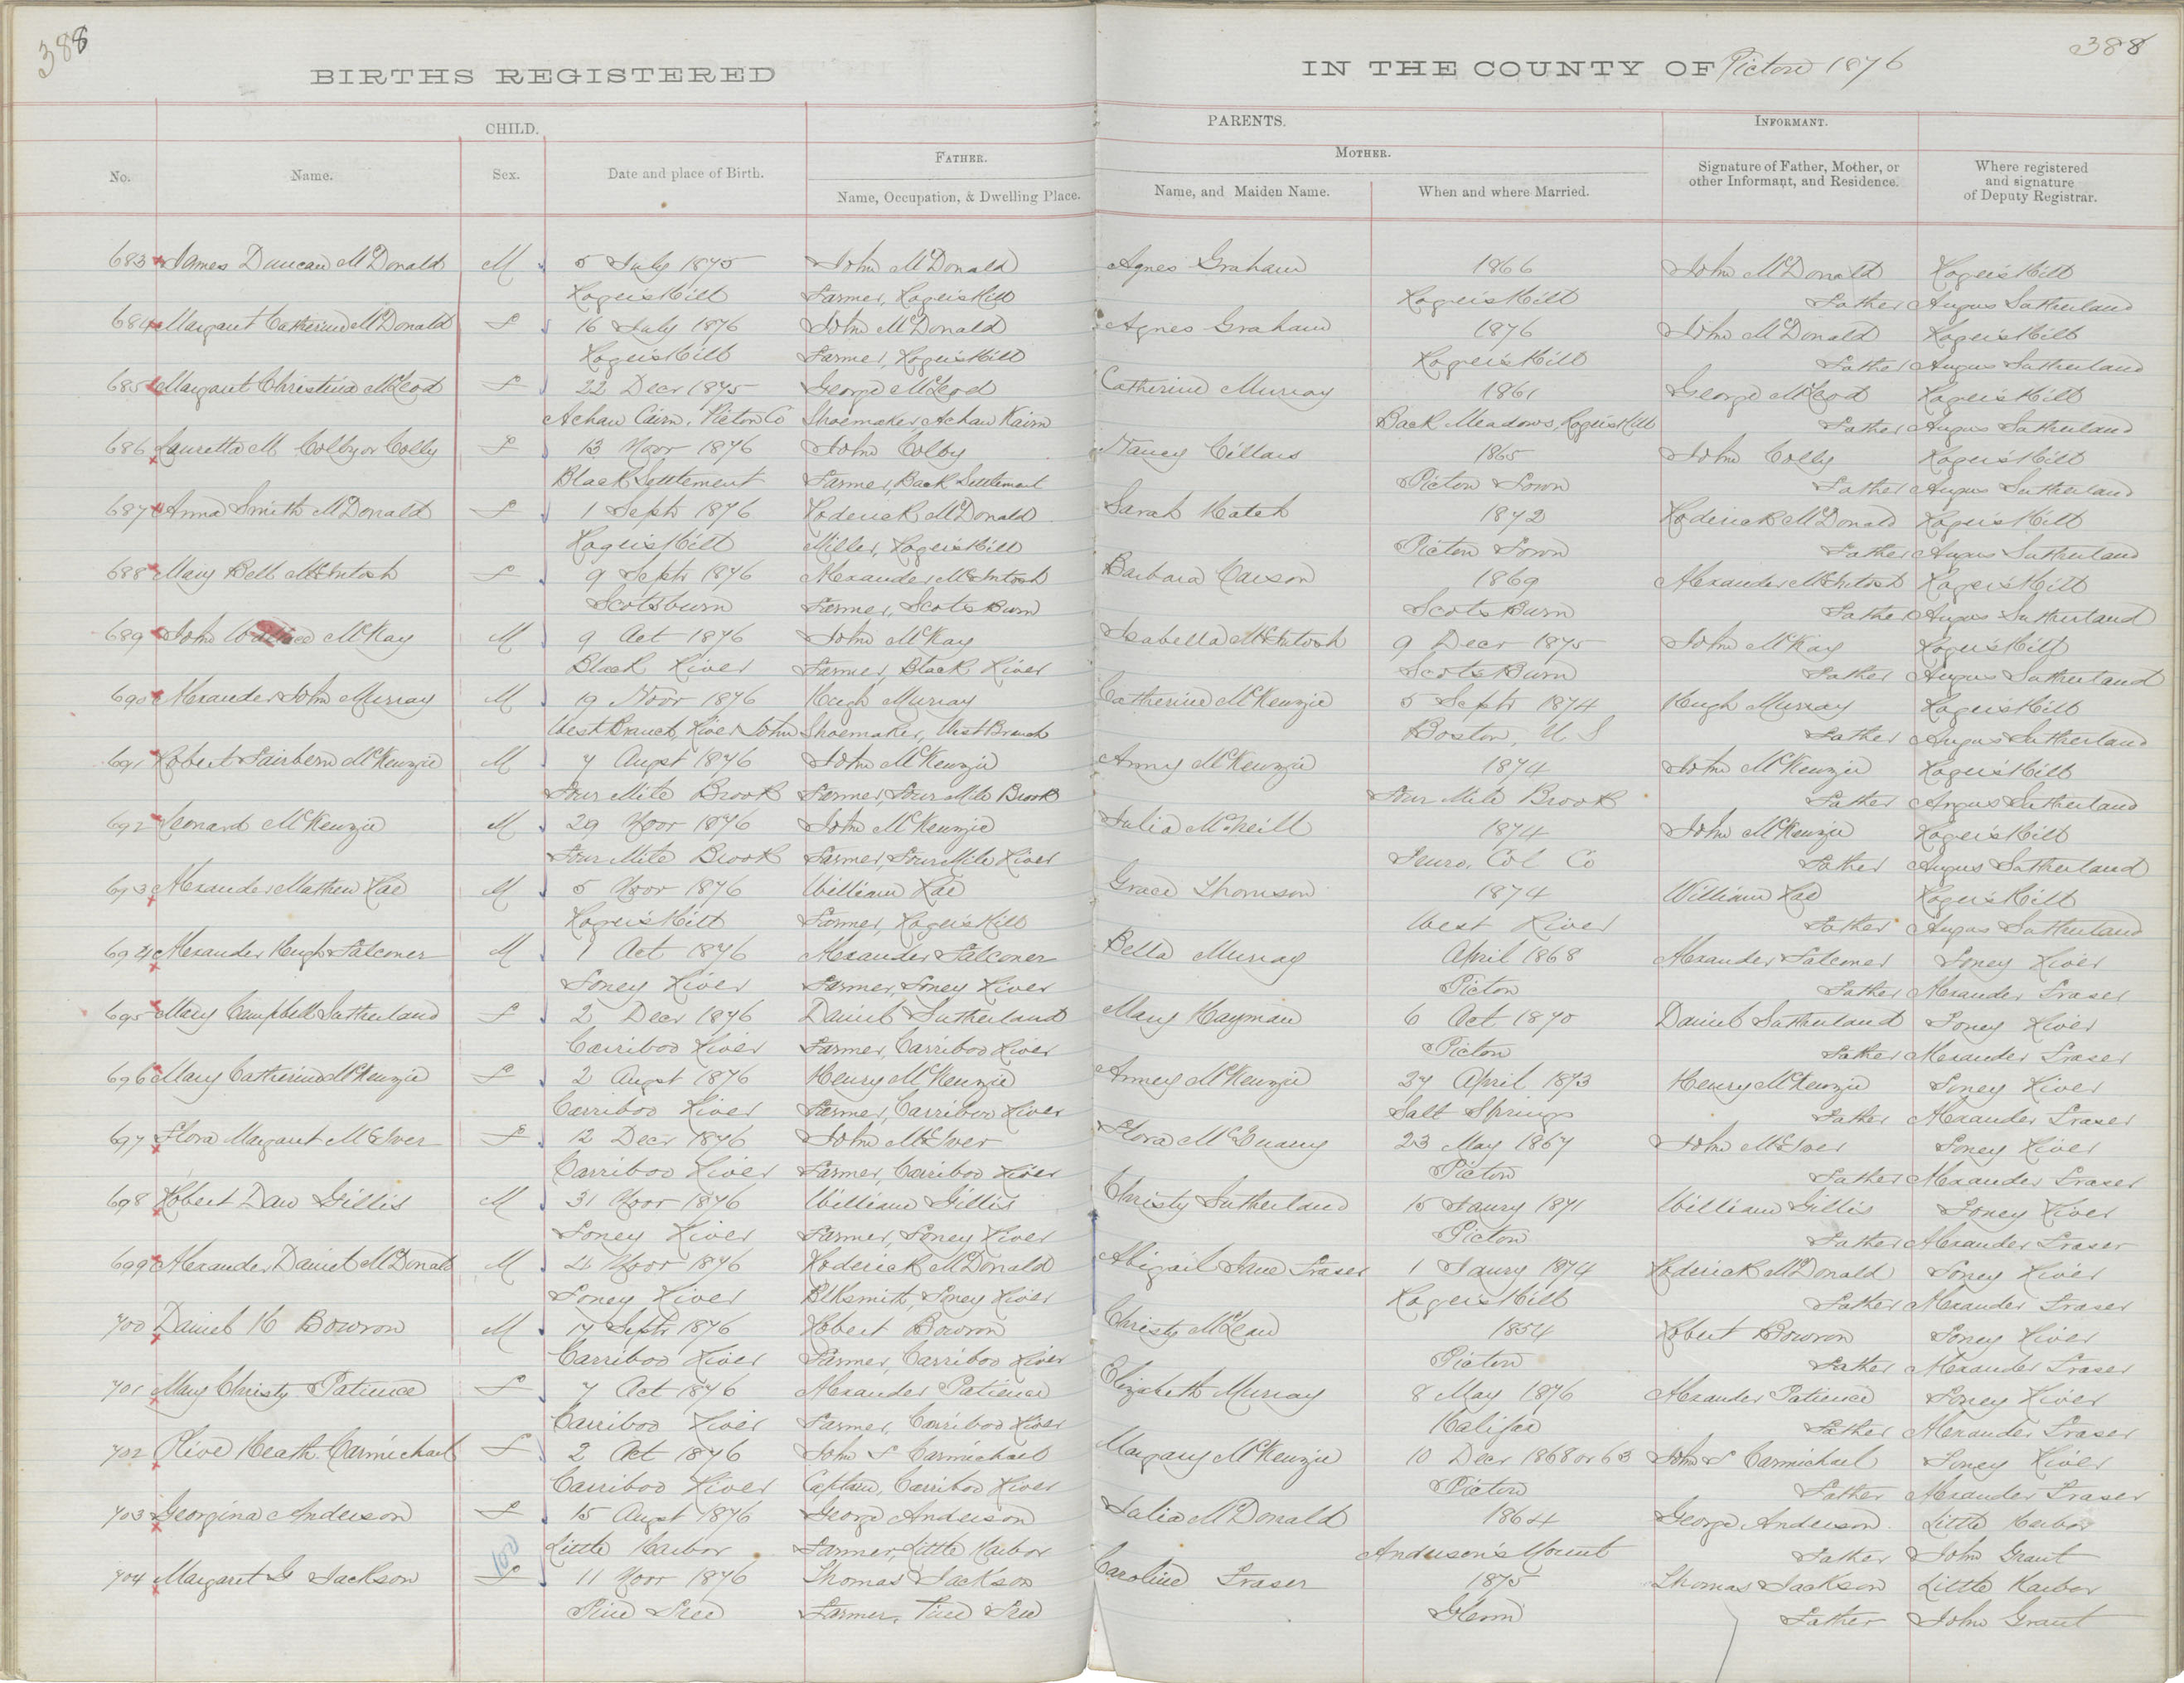 388
388
BIRTHS REGISTERED IN THE COUNTY OF Picton 1876
CHILD. PARENTS. INFORMANT.
FATHER. MOTHER.
No. Name. Sex. Date and place of Birth. Name, Occupation, & Dwelling Place. Name, and Maiden Name. When and where Married. Signature of Father, Mother, or other Informant, and Residence. Where registered and signature of Deputy Registrar.
683 James Duncan McDonald M 5 July 1875 John McDonald Agnes Graham 1866 John McDonald Rogers Hill
Rogers Hill Farmer, Rogers Hill Rogers Hill Father Angus Sutherland
684 Margaret Catherine McDonald F 16 July 1876 John McDonald Agnes Graham 1876 John McDonald Rogers Hill
Rogers Hill Farmer, Rogers Hill Rogers Hill Father Angus Sutherland
685 Margaret Christina McLeod F 22 Decr 1875 George McLeod Catherine Murray 1861 George McLeod Rogers Hill
Achan Cairn, Picton Co Shoemaker, Achan Kairn Back Meadows, Rogers Hill Father Angus Sutherland
686 Lauretta M Colby or Colly F 13 Novr 1876 John Colby Nancy 1865 John Colly Rogers Hill
Black Settlement Farmer, Back Settlement Picton Town Father Angus Sutherland
687 Anna Smith McDonald F 1 Septr 1876 Roderick McDonald Sarah Hatch 1872 Roderick McDonald Rogers Hill
Rogers Hill Miller, Rogers Hill Picton Town Father Angus Sutherland
688 Mary Bell McIntosh F 9 Septr 1876 Alexander McIntosh Barbara Carson 1869 Alexander McIntosh Rogers Hill
Scotsburn Farmer, Scots Burn Scots Burn Father Angus Sutherland
689 John Wallace McKay M 9 Oct 1876 John McKay Isabella McIntosh 9 Decr 1875 John McKay Rogers Hill
Black River Farmer, Black River Scots Burn Father Angus Sutherland
690 Alexander John Murray M 19 Novr 1876 Hugh Murray Catherine McKenzie 5 Septr 1874 Hugh Murray Rogers Hill
West Branch, River John Shoemaker, West Branch Boston, U S Father Angus Sutherland
691 Robert Fairbern McKenzie M 7 Augst 1876 John McKenzie Anny McKenzie 1874 John McKenzie Rogers Hill
Four Mile Brook Farmer, Four Mile Brook Four Mile Brook Father Angus Sutherland
692 Leonard McKenzie M 29 Novr 1876 John McKenzie Julia McNeill 1874 John McKenzie Rogers Hill
Four Mile Brook Farmer, Four Mile River Truro, Col Co Father Angus Sutherland
693 Alexander Mathew Rae M 5 Novr 1876 William Rae Grace Thomson 1874 William Rae Rogers Hill
Rogers Hill Farmer, Rogers Hill West River Father Angus Sutherland
694 Alexander Hugh Falconer M 1 Oct 1876 Alexander Falconer Bella Murray April 1868 Alexander Falconer Toney River
Toney River Farmer, Toney River Picton Father Alexander Fraser
695 Mary Campbell Sutherland F 2 Decr 1876 Daniel Sutherland Mary Hayman 6 Oct 1870 Daniel Sutherland Toney River
Carriboo River Farmer, Carriboo River Picton Father Alexander Fraser
696 Mary Catherine McKenzie F 2 Augst 1876 Henry McKenzie Anney McKenzie 27 April 1873 Henry McKenzie Toney River
Carriboo River Farmer, Carriboo River Salt Springs Father Alexander Fraser
697 Flora Margaret McIver F 12 Decr 1876 John McIver Flora 23 May 1867 John McIver Toney River
Carriboo River Farmer, Carriboo River Picton Father Alexander Fraser
698 Robert Daw Gillis M 31 Novr 1876 William Gillis Christy Sutherland 15 Jaury 1871 William Gillis Toney River
Toney River Farmer, Toney River Picton Father Alexander Fraser
699 Alexander Daniel McDonald M 4 Novr 1876 Roderick McDonald Abigail Jane Fraser 1 Jaury 1874 Roderick McDonald Toney River
Toney River Blksmith, Toney River Rogers Hill Father Alexander Fraser
700 Daniel H Bowron M 17 Septr 1876 Robert Bowron Christy McLean 1854 Robert Bowron Toney River
Carriboo River Farmer, Carriboo River Picton Father Alexander Fraser
701 Mary Christy Patience F 7 Oct 1876 Alexander Patience Elizabeth Murray 8 May 1876 Alexander Patience Toney River
Carriboo River Farmer, Carriboo River Halifax Father Alexander Fraser
702 Olive Heath Carmichael F 2 Oct 1876 John S Carmichael Margary McKenzie 10 Decr 1868 or 63 John S Carmichael Toney River
Carriboo River Captain, Carriboo River Picton Father Alexander Fraser
703 Georgina Anderson F 15 Augst 1876 George Anderson Julia McDonald 1864 George Anderson Little Harbor
Little Harbor Farmer, Little Harbor Anderson's Mount Father John Grant
100
704 Margaret G Jackson F 11 Novr 1876 Thomas Jackson Caroline Fraser 1875 Thomas Jackson Little Harbor
Pine Tree Farmer, Pine Tree Father John Grant